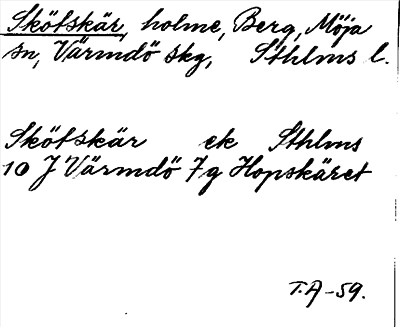 Skötskär, holme, Berg, Möja
sn, Värmdö skg, Sthlms l.
Skötskär ek Sthlms
10 J Värmdö 7g Hopskäret
T.A-59.